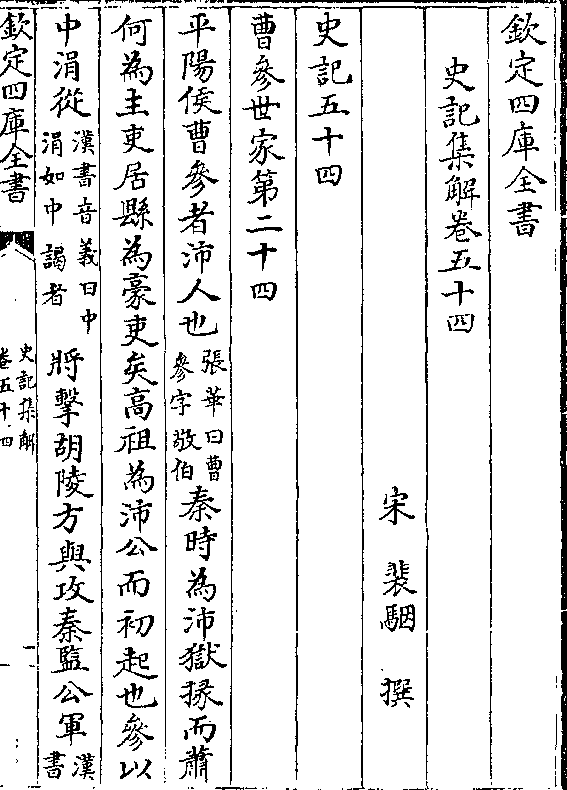 欽定四庫全書
史記集解卷五十四
宋 裴駰 撰
史記五十四
曹參世家第二十四
平陽侯曹參者沛人也張華曰曹參字敬伯秦時為沛獄掾而蕭
何為主吏居縣為豪吏矣高祖為沛公而初起也參以
中涓從漢書音義曰中涓如中謁者將擊胡陵方與攻秦監公軍漢書
欽定四庫全書
史記集解
卷五十四
一